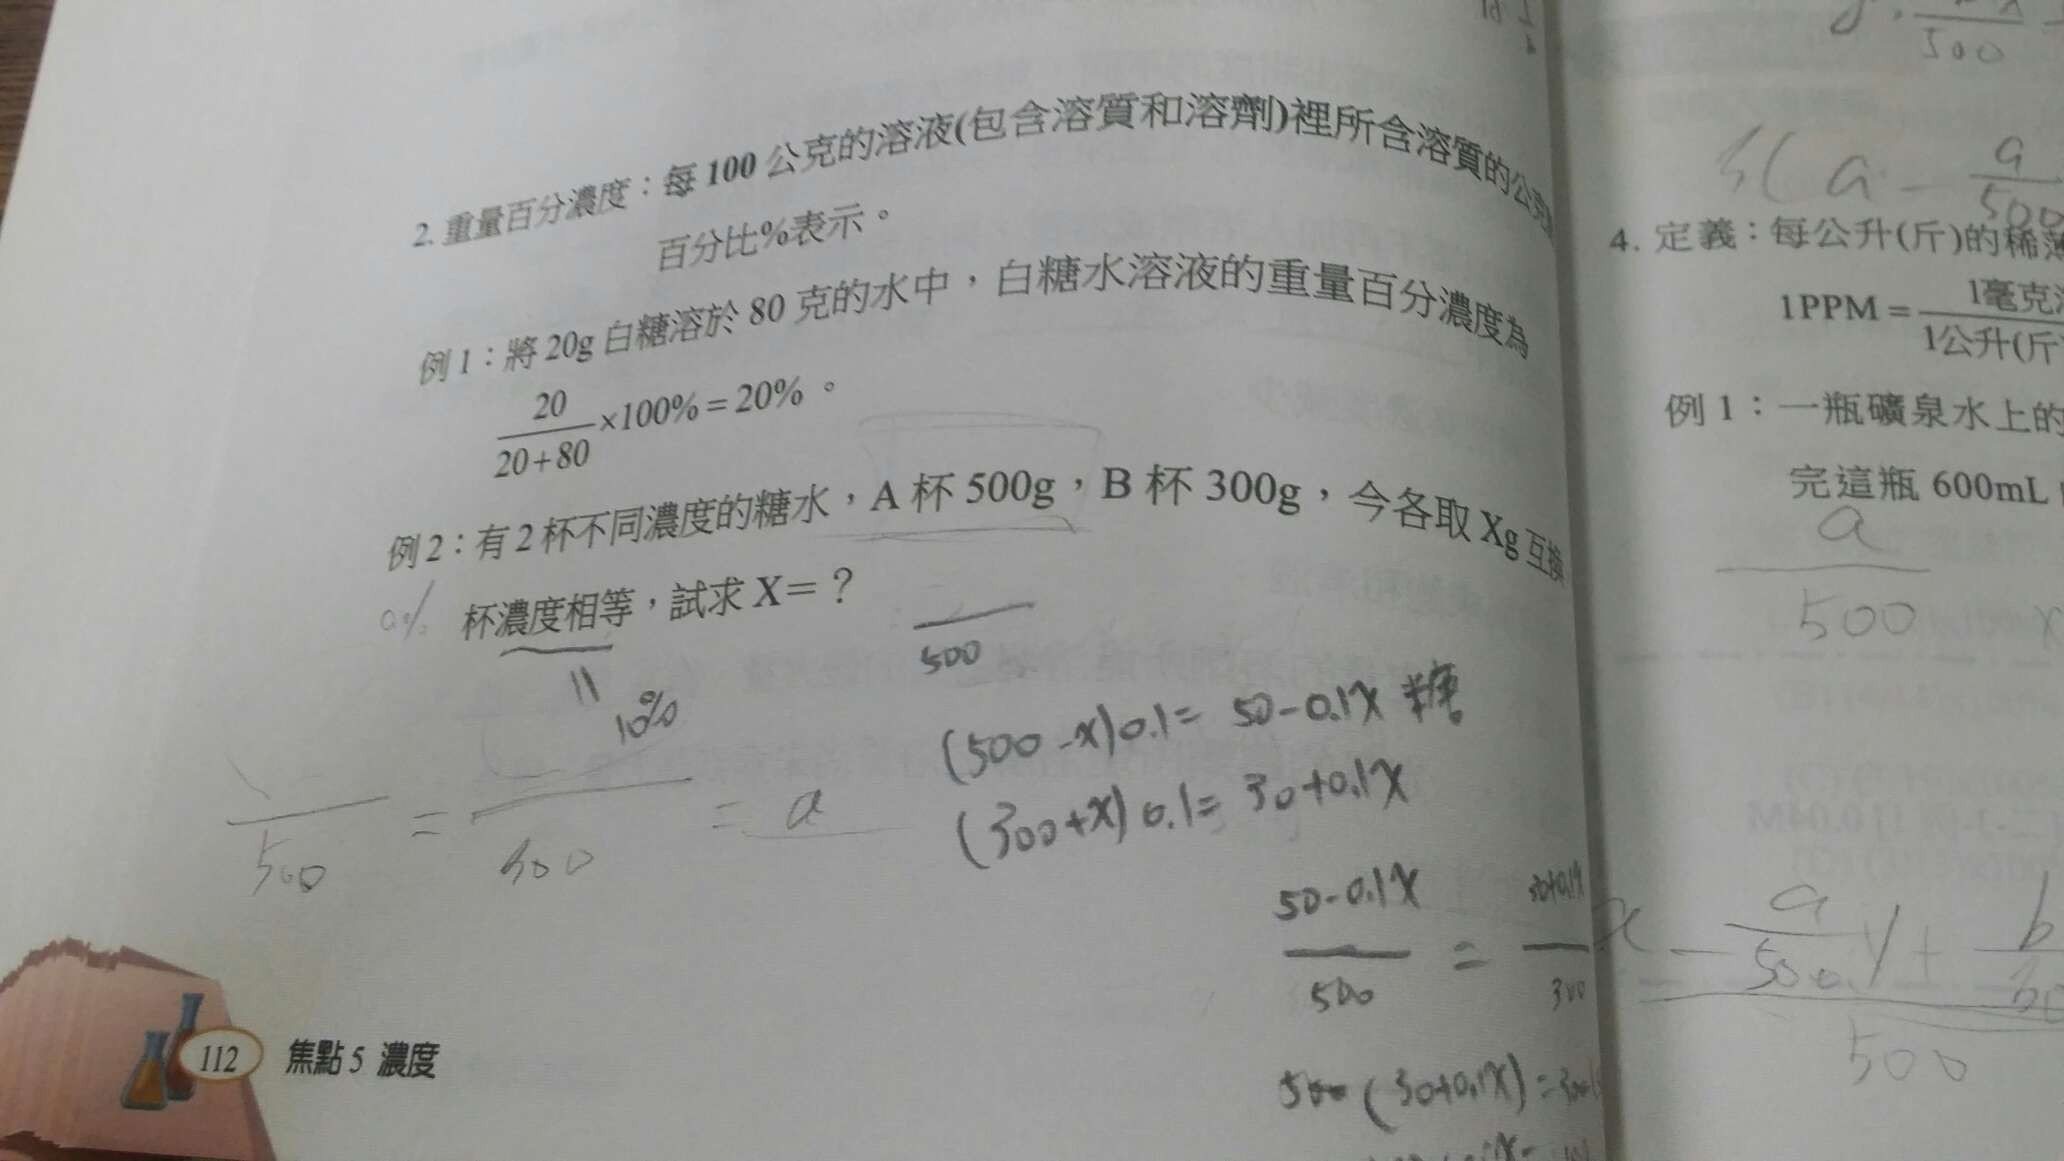 2. 重量百分濃度：每 100 公克的溶液(包含溶質和溶劑)裡所含溶質的公克
百分比%表示。
例 1：將 20g 白糖溶於 80 克的水中，白糖水溶液的重量百分濃度為
20
20+80
×100%=20%。
例 2：有 2 杯不同濃度的糖水，A 杯 500g，B 杯 300g，今各取 Xg 互換
杯濃度相等，試求 X=？
a%
11
10%
500
(500-x)0.1= 50-0.1x 糖
(300+x)0.1= 30+0.1x
500
=
= a
50-0.1x
500
=
30+0.1x
300
500 (30+0.1x) =
112 焦點 5 濃度
500
a
500
4. 定義：每公升(斤)的稀
1PPM =
1毫克
1公升(斤
例 1：一瓶礦泉水上的
完這瓶 600mL
a
500
a
500
y +
b
500